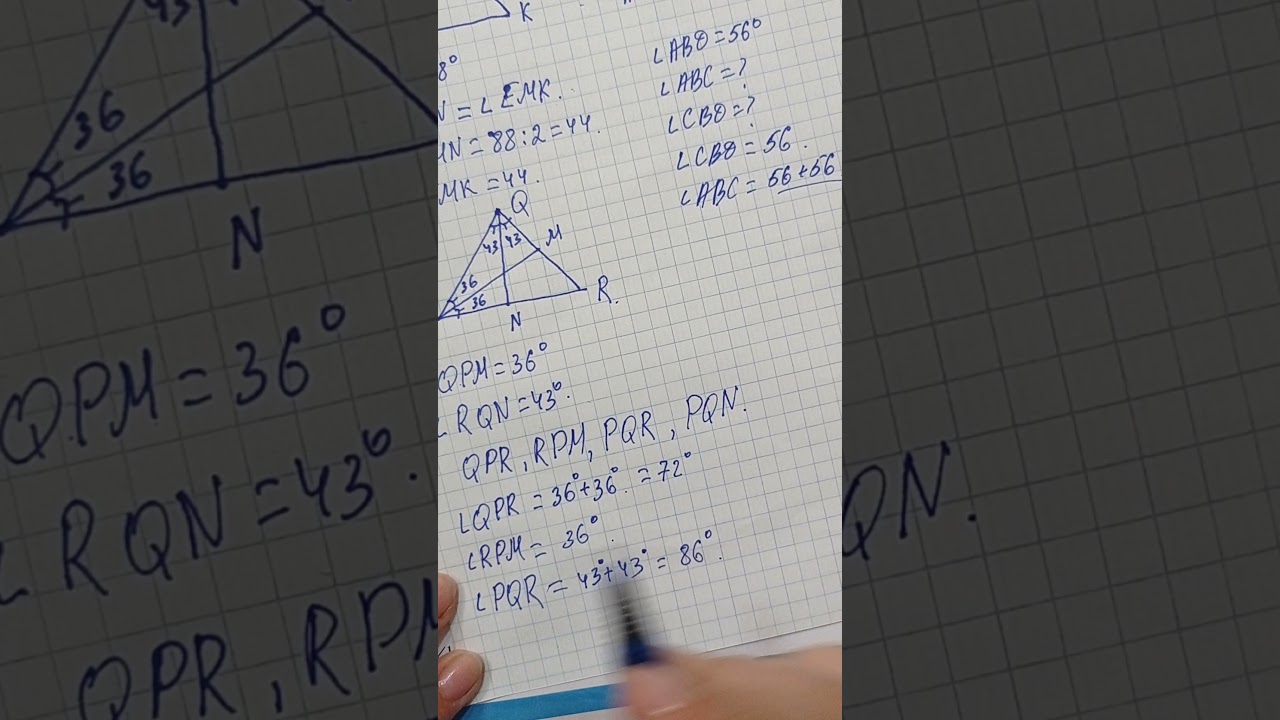 K
8°
N = ∠EMK.
MN = 88:2 = 44.
MK = 44.
∠ABD = 56°
∠ABC = ?
∠CBD = ?
∠CBD = 56.
∠ABC = 56+56
Q
43 43 M
36
36
N
R.
QPM = 36°
∠RQN = 43°.
QPR, RPM, PQR, PQN.
∠QPR = 36°+36°. = 72°
∠RPM = 36°.
∠PQR = 43°+43° = 86°.
43
36
36
N
QPM = 36°
∠RQN = 43°.
QPR, RPM
QN.